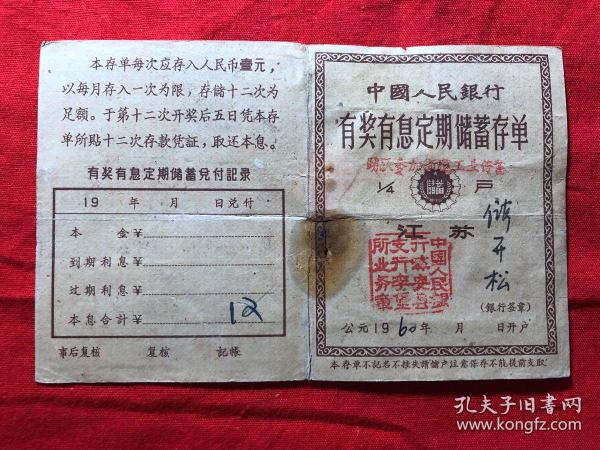 本存单每次应存入人民币壹元，
以每月存入一次为限，存储十二次为
足额。于第十二次开奖后五日凭本存
单所贴十二次存款凭证，取还本息。
有奖有息定期储蓄兑付記录
19 年 月 日兑付
本 金￥
到期利息￥
过期利息￥
本息合計￥
12
事后复核 复核 記帳
中國人民銀行
有奖有息定期储蓄存单
1/4 戶
儲蓄
江苏
开松
中国人民銀
行
(銀行签章)
公元1960年 月 日开户
本存单不記名不挂失請儲户注意保存不能提前支取
孔夫子旧书网
www.kongfz.com